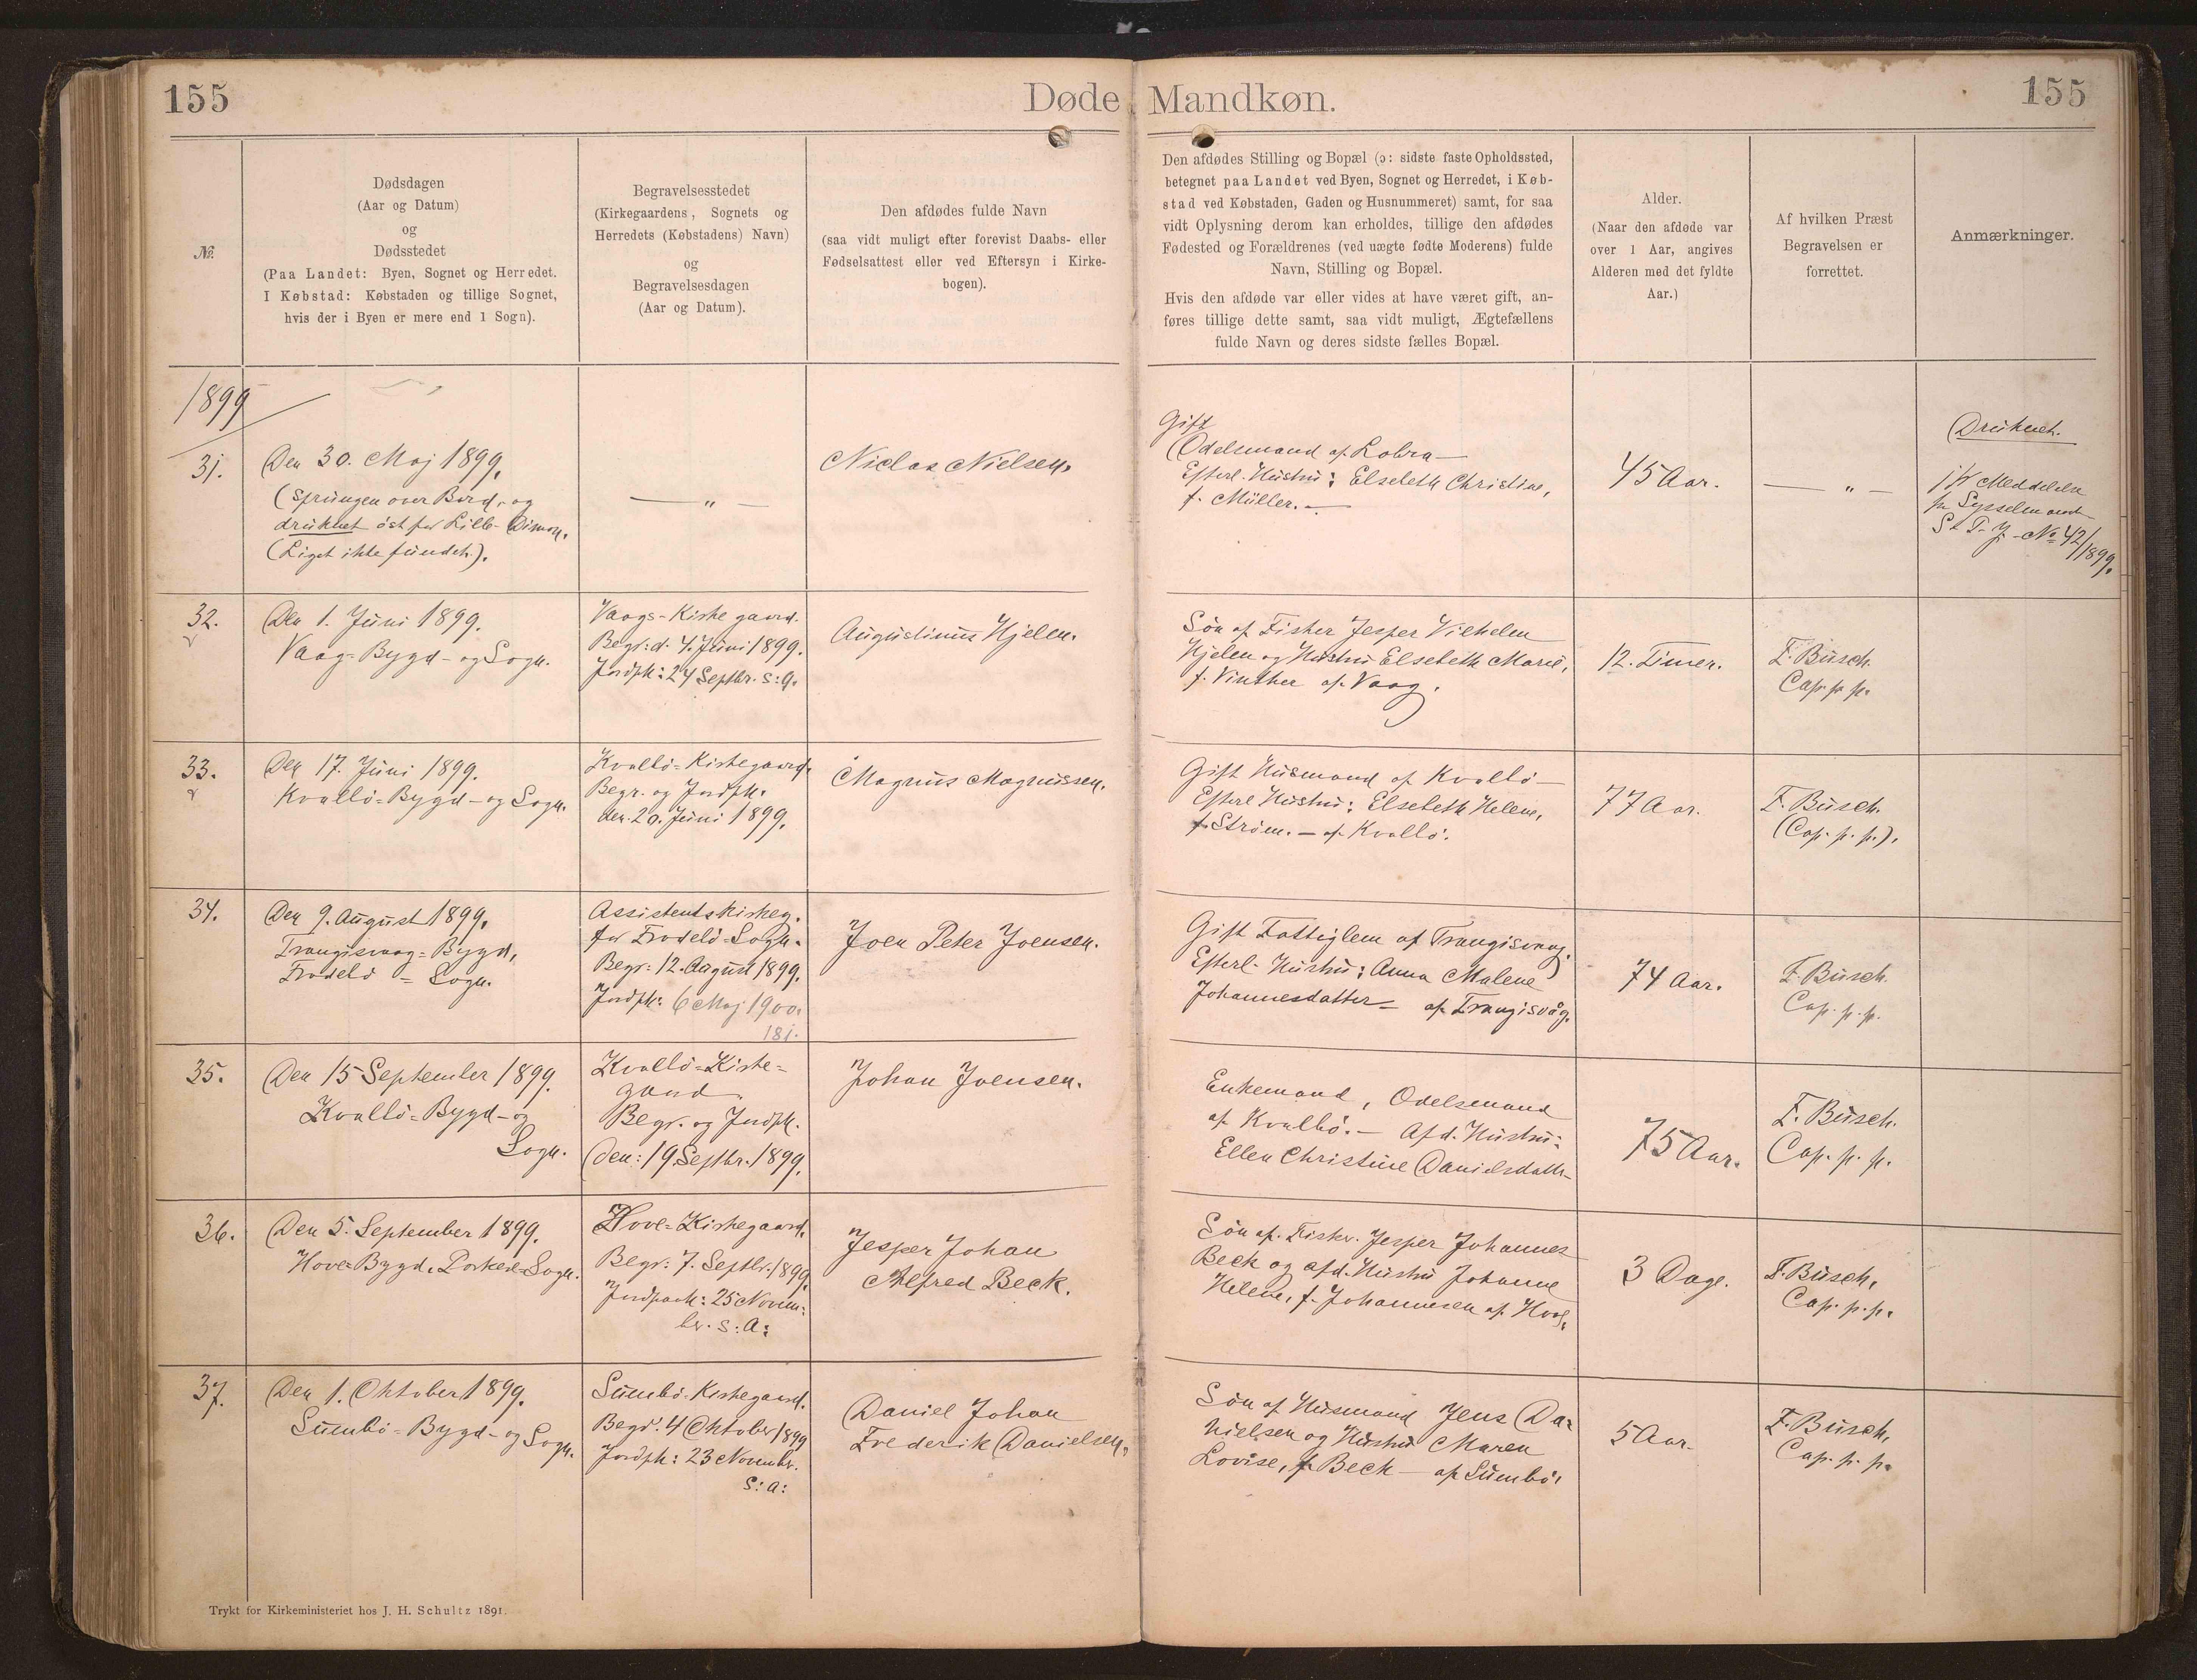 155
Døde Mandkøn.
155
№
Dødsdagen
(Aar og Datum)
og
Dødsstedet
(Paa Landet: Byen, Sognet og Herredet.
I Købstad: Købstaden og tillige Sognet,
hvis der i Byen er mere end 1 Sogn).
Begravelsesstedet
(Kirkegaardens, Sognets og
Herredets (Købstadens) Navn)
og
Begravelsesdagen
(Aar og Datum).
Den afdødes fulde Navn
(saa vidt muligt efter forevist Daabs- eller
Fødselsattest eller ved Eftersyn i Kirke-
bogen).
Den afdødes Stilling og Bopæl (ɔ: sidste faste Opholdssted,
betegnet paa Landet ved Byen, Sognet og Herredet, i Køb-
stad ved Købstaden, Gaden og Husnummeret) samt, for saa
vidt Oplysning derom kan erholdes, tillige den afdødes
Fødested og Forældrenes (ved uægte fødte Moderens) fulde
Navn, Stilling og Bopæl.
Hvis den afdøde var eller vides at have været gift, an-
føres tillige dette samt, saa vidt muligt, Ægtefællens
fulde Navn og deres sidste fælles Bopæl.
Alder.
(Naar den afdøde var
over 1 Aar, angives
Alderen med det fyldte
Aar.)
Af hvilken Præst
Begravelsen er
forrettet.
Anmærkninger.
1899
31.
Den 30. Maj 1899.
(Sprungen over Bord, og
druknet öst for Lille-Dimon.
(Liget ikke fundet).
— „ —
Niclas Nielsen.
Gift
Odelsmand af Lobra—
Efterl. Hustru: Elsebeth Christine,
f. Müller.—
45 Aar.
— „ —
Druknet.
jfr Meddelelse
fra Sysselmand
J. No 42/1899.
32.
Den 1. Juni 1899.
Vaag-Bygd- og Sogn.
Vaags-Kirkegaard.
Begr: d. 4. Juni 1899.
Jordpk: 24 Septbr. s: a.
Augustinus Hjelm.
Sön af Fisker Jesper Vilhelm
Hjelm og Hustru Elsebeth Marie,
f. Vinther af Vaag.
12. Timer.
F. Busch.
Cap. p. p.
33.
Den 17. Juni 1899.
Kvalbö-Bygd- og Sogn.
Kvalbö-Kirkegaard.
Begr. og Jordpk.
den 20. Juni 1899.
Magnus Magnussen.
Gift Husmand af Kvalbö—
Efterl Hustru: Elsebeth Helene,
f. Ström. — af Kvalbö.
77 Aar.
F. Busch.
(Cap. p. p.).
34.
Den 9. August 1899.
Trangisvaag-Bygd,
Frodebö-Sogn.
Assistentskirkeg.
for Frodebö-Sogn.
Begr: 12. August 1899.
Jordpk: 6 Maj 1900.
181.
Joen Peter Joensen.
Gift Fattiglem af Trangisvaag.
Efterl. Hustru: Anna Malene
Johannesdatter— af Trangisvåg.
74 Aar.
F. Busch.
Cap. p. p.
35.
Den 15 September 1899.
Kvalbö-Bygd- og
Sogn.
Kvalbö-Kirke-
gaard.
Begr. og Jordpk.
den: 19 Septbr. 1899.
Johan Joensen.
Enkemand, Odelsmand
af Kvalbö.— Afd. Hustru:
Ellen Christine Danielsdatt-
75 Aar.
F. Busch.
Cap. p. p.
36.
Den 5. September 1899.
Hove-Bygd. Porkere-Sogn.
Hove-Kirkegaard.
Begr: 7. Septbr. 1899.
Jordpaak: 25 Novem-
ber. s: a:
Jesper Johan
Alfred Beck.
Sön af. Fisker. Jesper Johannes
Beck og afd. Hustru Johanne
Helene, f. Johannesen af Hove.
3 Dage.
F. Busch,
Cap. p. p.
37.
Den 1. Oktober 1899.
Sumbö-Bygd- og Sogn.
Sumbö-Kirkegaard.
Begr: 4 Oktober 1899
Jordpk: 23 Novembr.
s: a:
Daniel Johan
Frederik Danielsen.
Sön af Husmand Jens Da-
nielsen og Hustru Maren
Lovise, f. Beck— af Sumbö.
5 Aar.
F. Busch,
Cap. p. p.
Trykt for Kirkeministeriet hos J. H. Schultz 1891.